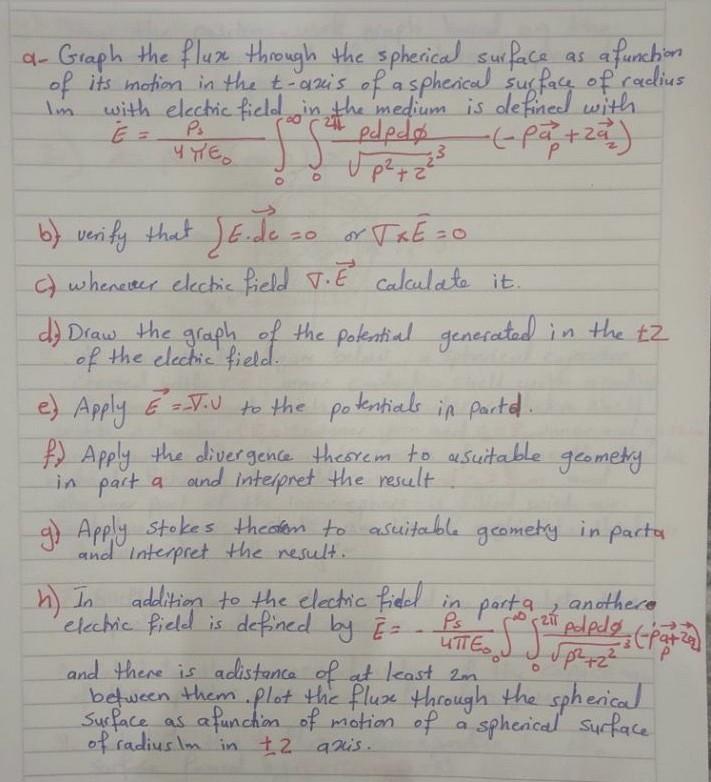 a- Graph the flux through the spherical surface as afunction
of its motion in the t-axis of a spherical surface of radius
1m with electric field in the medium is defined with
Ė = ρs / 4πε₀ ∫₀^∞ ∫₀^2π ρdρdφ / √(ρ²+z²)³ (-ρa⃗ρ + za⃗z)
b) verify that ∫E.dc⃗ =0 or ∇×Ē =0
c) whenever electric field ∇.E⃗ calculate it.
d) Draw the graph of the potential generated in the ±z
of the electric field.
e) Apply E⃗ =-∇.U to the potentials in part d.
f) Apply the divergence theorem to asuitable geometry
in part a and interpret the result
g) Apply stokes theorem to asuitable geometry in parta
and interpret the result.
h) In addition to the electric field in part a, anothere
electric field is defined by Ē = - ρs / 4πε₀ ∫₀^∞ ∫₀^2π ρdρdφ / √(ρ²+z²)³ (-ρa⃗ρ + za⃗z)
and there is adistance of at least 2m
between them. plot the flux through the spherical
surface as afunction of motion of a spherical surface
of radius 1m in ±z axis.